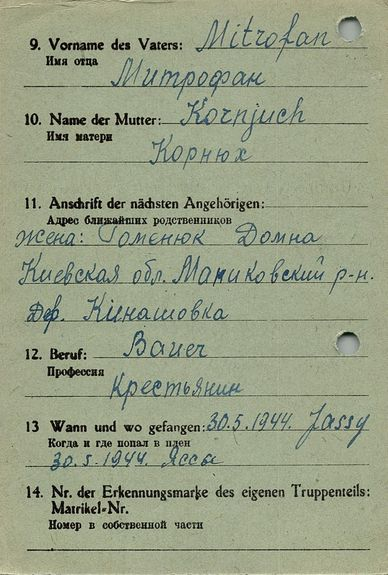 9. Vorname des Vaters: Mitrofan
Имя отца
Митрофан
10. Name der Mutter: Kornjuch
Имя матери
Корнюх
11. Anschrift der nächsten Angehörigen:
Адрес ближайших родственников
Жена: Гоменюк Домна
Киевская обл. Маниковский р-н.
Дер. Кинашовка
12. Beruf: Bauer
Профессия
Крестьянин
13 Wann und wo gefangen: 30.5.1944. Jassy
Когда и где попал в плен
30.5.1944. Яссы
14. Nr. der Erkennungsmarke des eigenen Truppenteils:
Matrikel-Nr.
Номер в собственной части